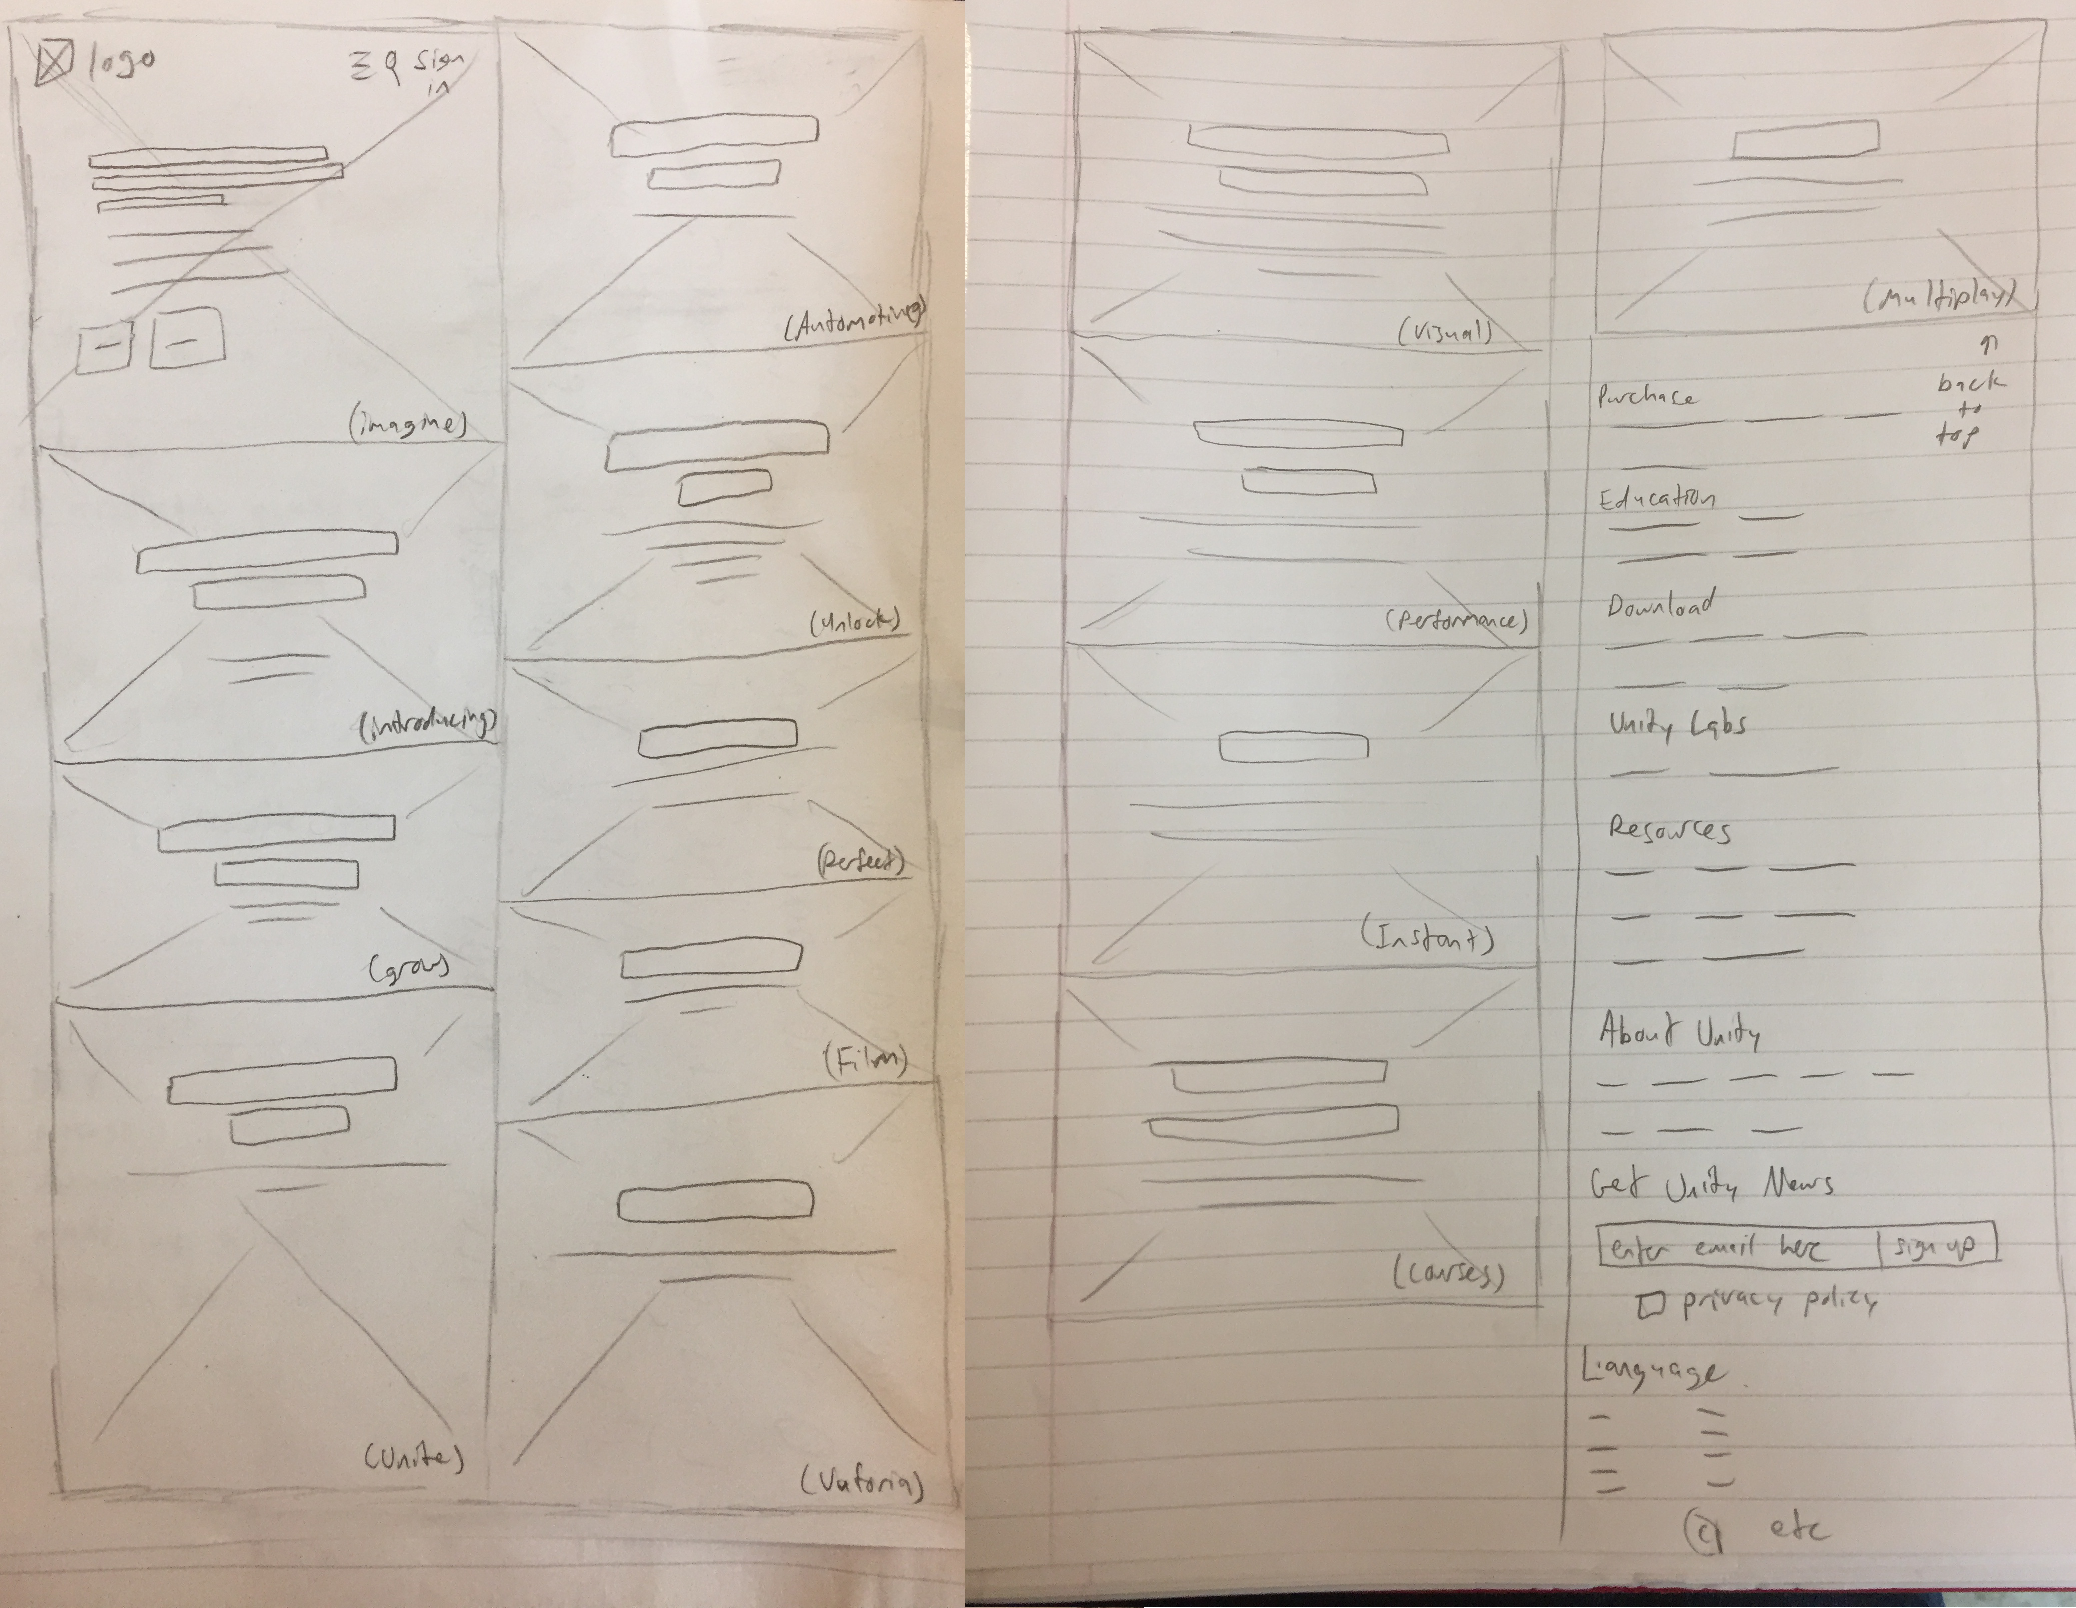 logo
sign
in
(imagine)
(introducing)
(grow)
(Unite)
(Automotive)
(Unlock)
(Perfect)
(Film)
(Vuforia)
(Visual)
(Performance)
(Instant)
(Courses)
(Multiplay)
back
to
top
Purchase
Education
Download
Unity Labs
Resources
About Unity
Get Unity News
enter email here sign up
privacy policy
Language
© etc